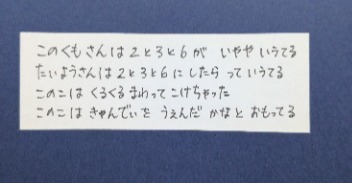 このくもさんは2と3と6が いやや いうてる
たいようさんは2と3と6にしたら っていうてる
このこは くるくる まわって こけちゃった
このこは きゃんでぃを うぇんだ かなと おもってる